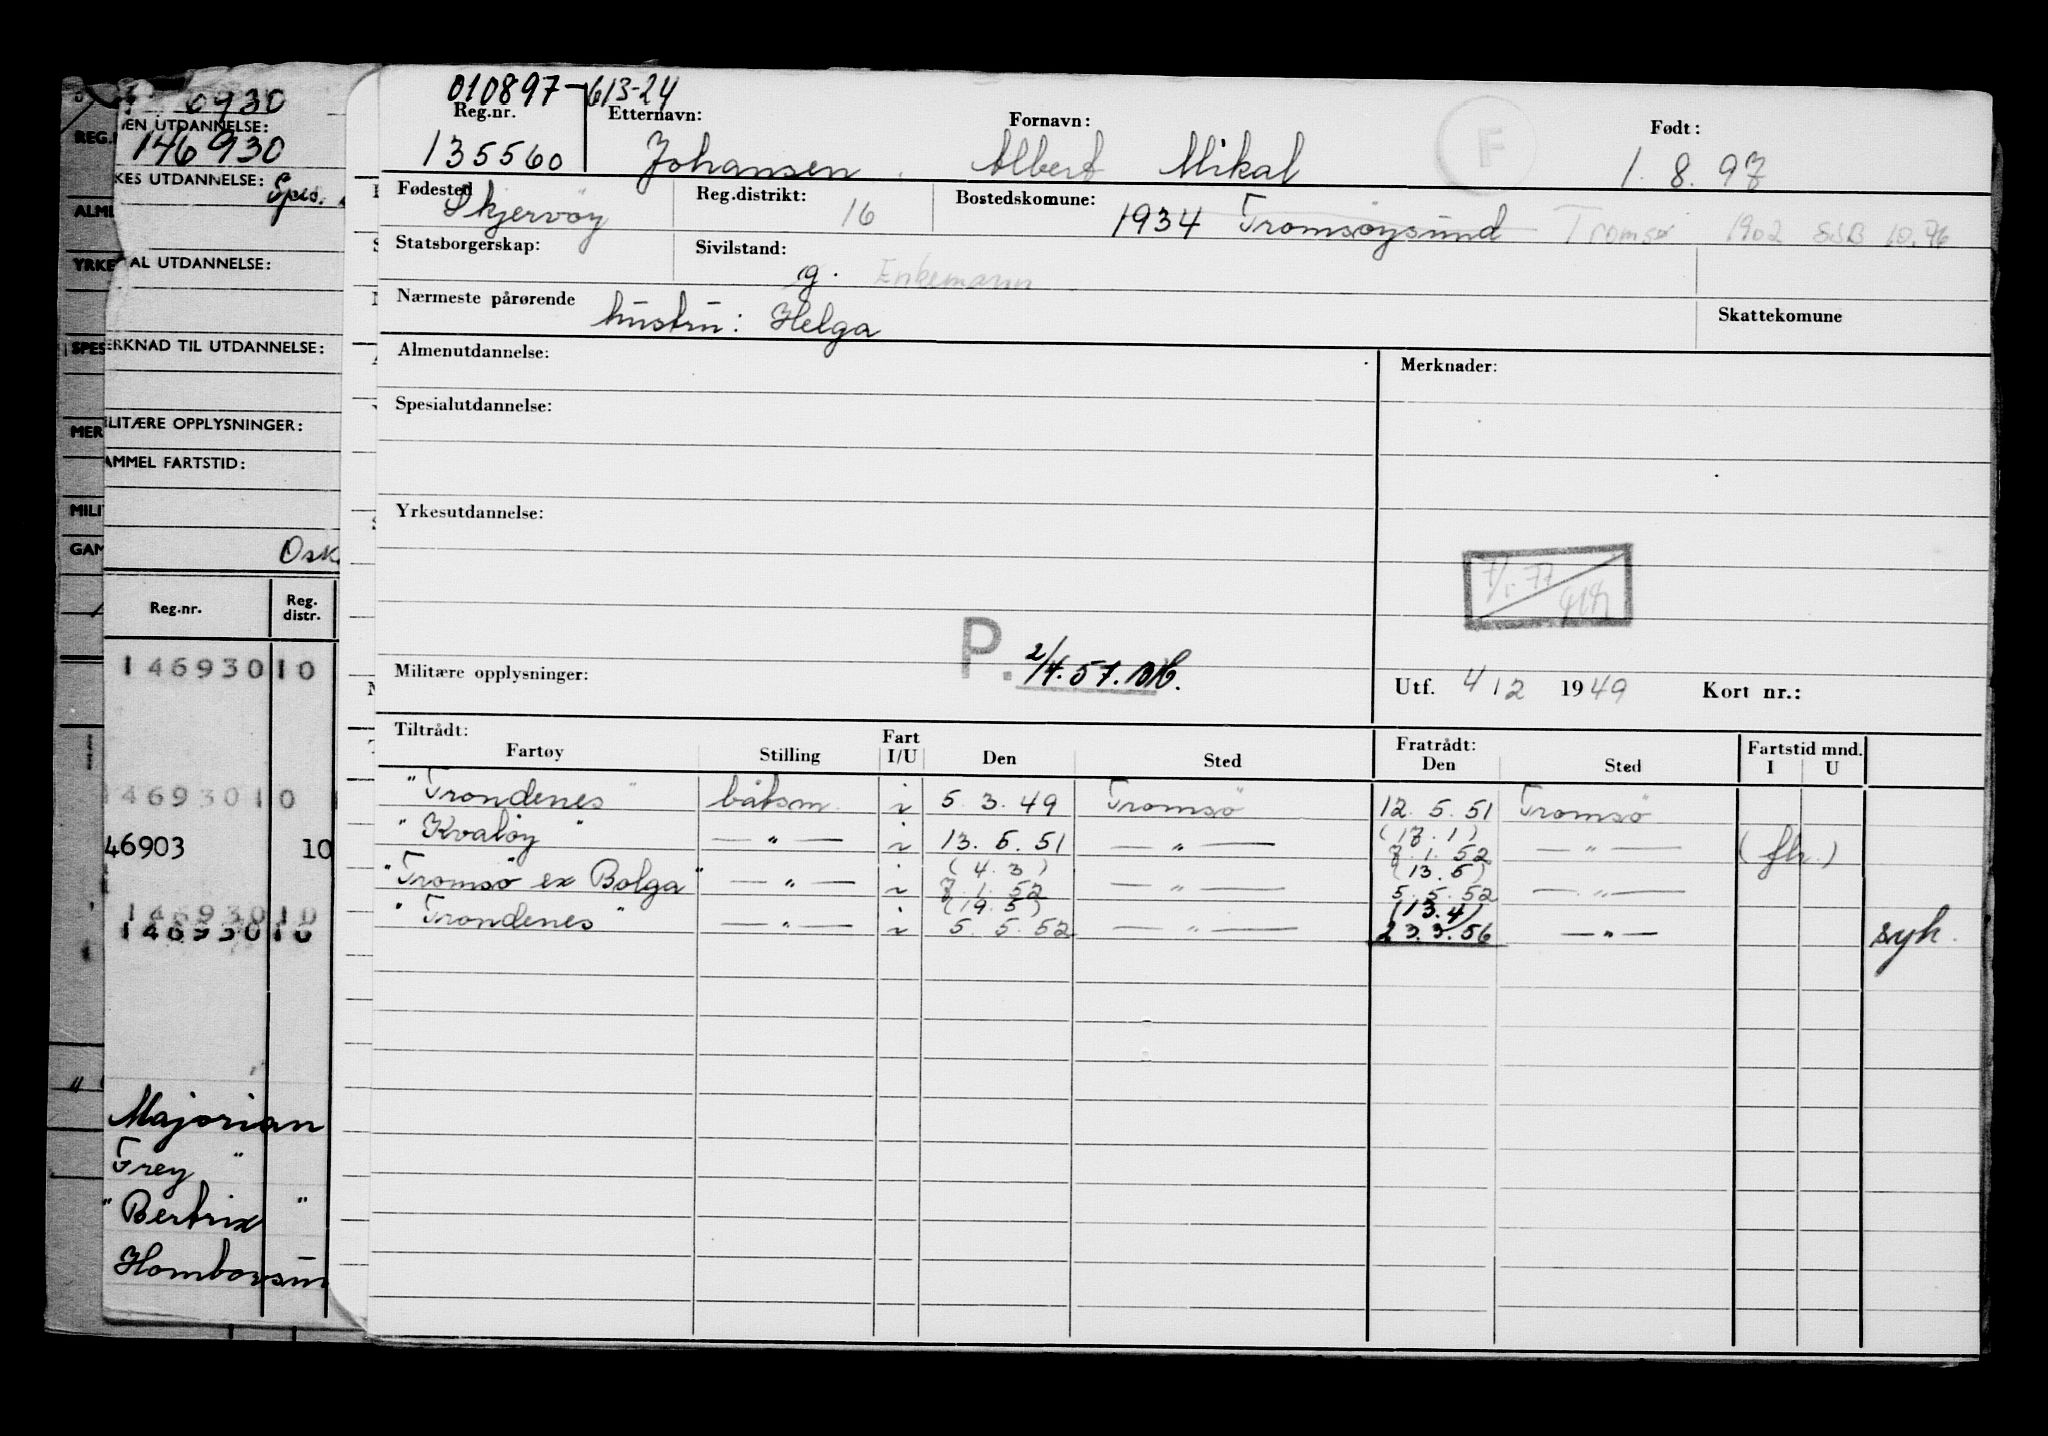 010897-61324
Reg.nr. Etternavn: Fornavn: Født:
135560 Johansen, Albert Mikal F 1. 8. 97
Fødested Reg.distrikt: Bostedskomune:
Skjervøy 16 1934 Tromsøysund Tromsø 1902 SSB 10.76
Statsborgerskap: Sivilstand:
g. Enkemann
Nærmeste pårørende Skattekomune
hustru: Helga
Almenutdannelse: Merknader:
Spesialutdannelse:
Yrkesutdannelse:
7/1.77
P. 2/4.57.
Militære opplysninger: Utf. 4 12 1949 Kort nr.:
Tiltrådt: Fart Fratrådt: Fartstid mnd.
Fartøy Stilling I/U Den Sted Den Sted I U
"Trondenes" båtsm. i 5. 3. 49 Tromsø 12. 5. 51 Tromsø
"Kvaløy" — " — i 13. 5. 51 — " — (17.1) 7. 1. 52 — " — (flr.)
"Tromsø ex Bolga" — " — i (4.3) 7. 1. 52 — " — (13.5) 5. 5. 52 — " —
"Trondenes" — " — i (19.5) 5. 5. 52 — " — (13.4) 23.3.56 — " — syk.
6930
EN UTDANNELSE:
146930
KES UTDANNELSE: Spes.
AL UTDANNELSE:
ERKNAD TIL UTDANNELSE:
LITÆRE OPPLYSNINGER:
AMMEL FARTSTID:
Osk
Reg.nr. Reg. distr.
146930 10
46930 10
46903 10
146930 10
146930 10
Majorian
Frey "
"Bertrix "
Homborsun
REG.
ALME
YRKE
SPES
MER
MILI
GAM